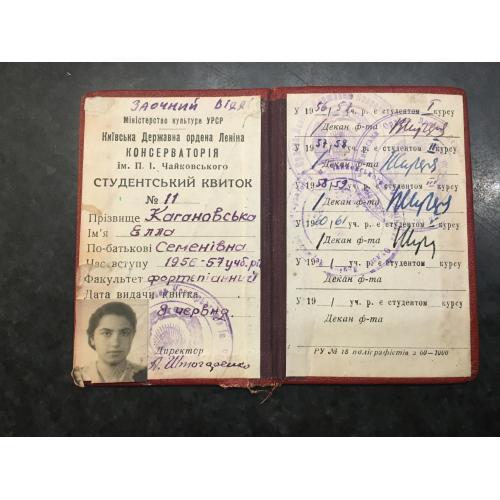 Заочний відді
Міністерство культури УРСР
Київська Державна ордена Леніна
КОНСЕРВАТОРІЯ
ім. П. І. Чайковського
СТУДЕНТСЬКИЙ КВИТОК
№ 11
Прізвище Кагановська
Ім'я Елла
По-батькові Семенівна
Час вступу 1956-57 учб. рі
Факультет фортепіанний
Дата видачи квитка
8 червня
Директор
А. Штогаренко
У 1956/57 уч. р. є студентом I курсу
Декан ф-та
У 1957/58 уч. р. є студентом II курсу
Декан ф-та
У 1958/59 уч. р. є студентом III курсу
Декан ф-та
У 1960/61 уч. р. є студентом курсу
Декан ф-та
У 19 / уч. р. є студентом курсу
Декан ф-та
У 19 / уч. р. є студентом курсу
Декан ф-та
РУ № 18 поліграфістів з 60—1000